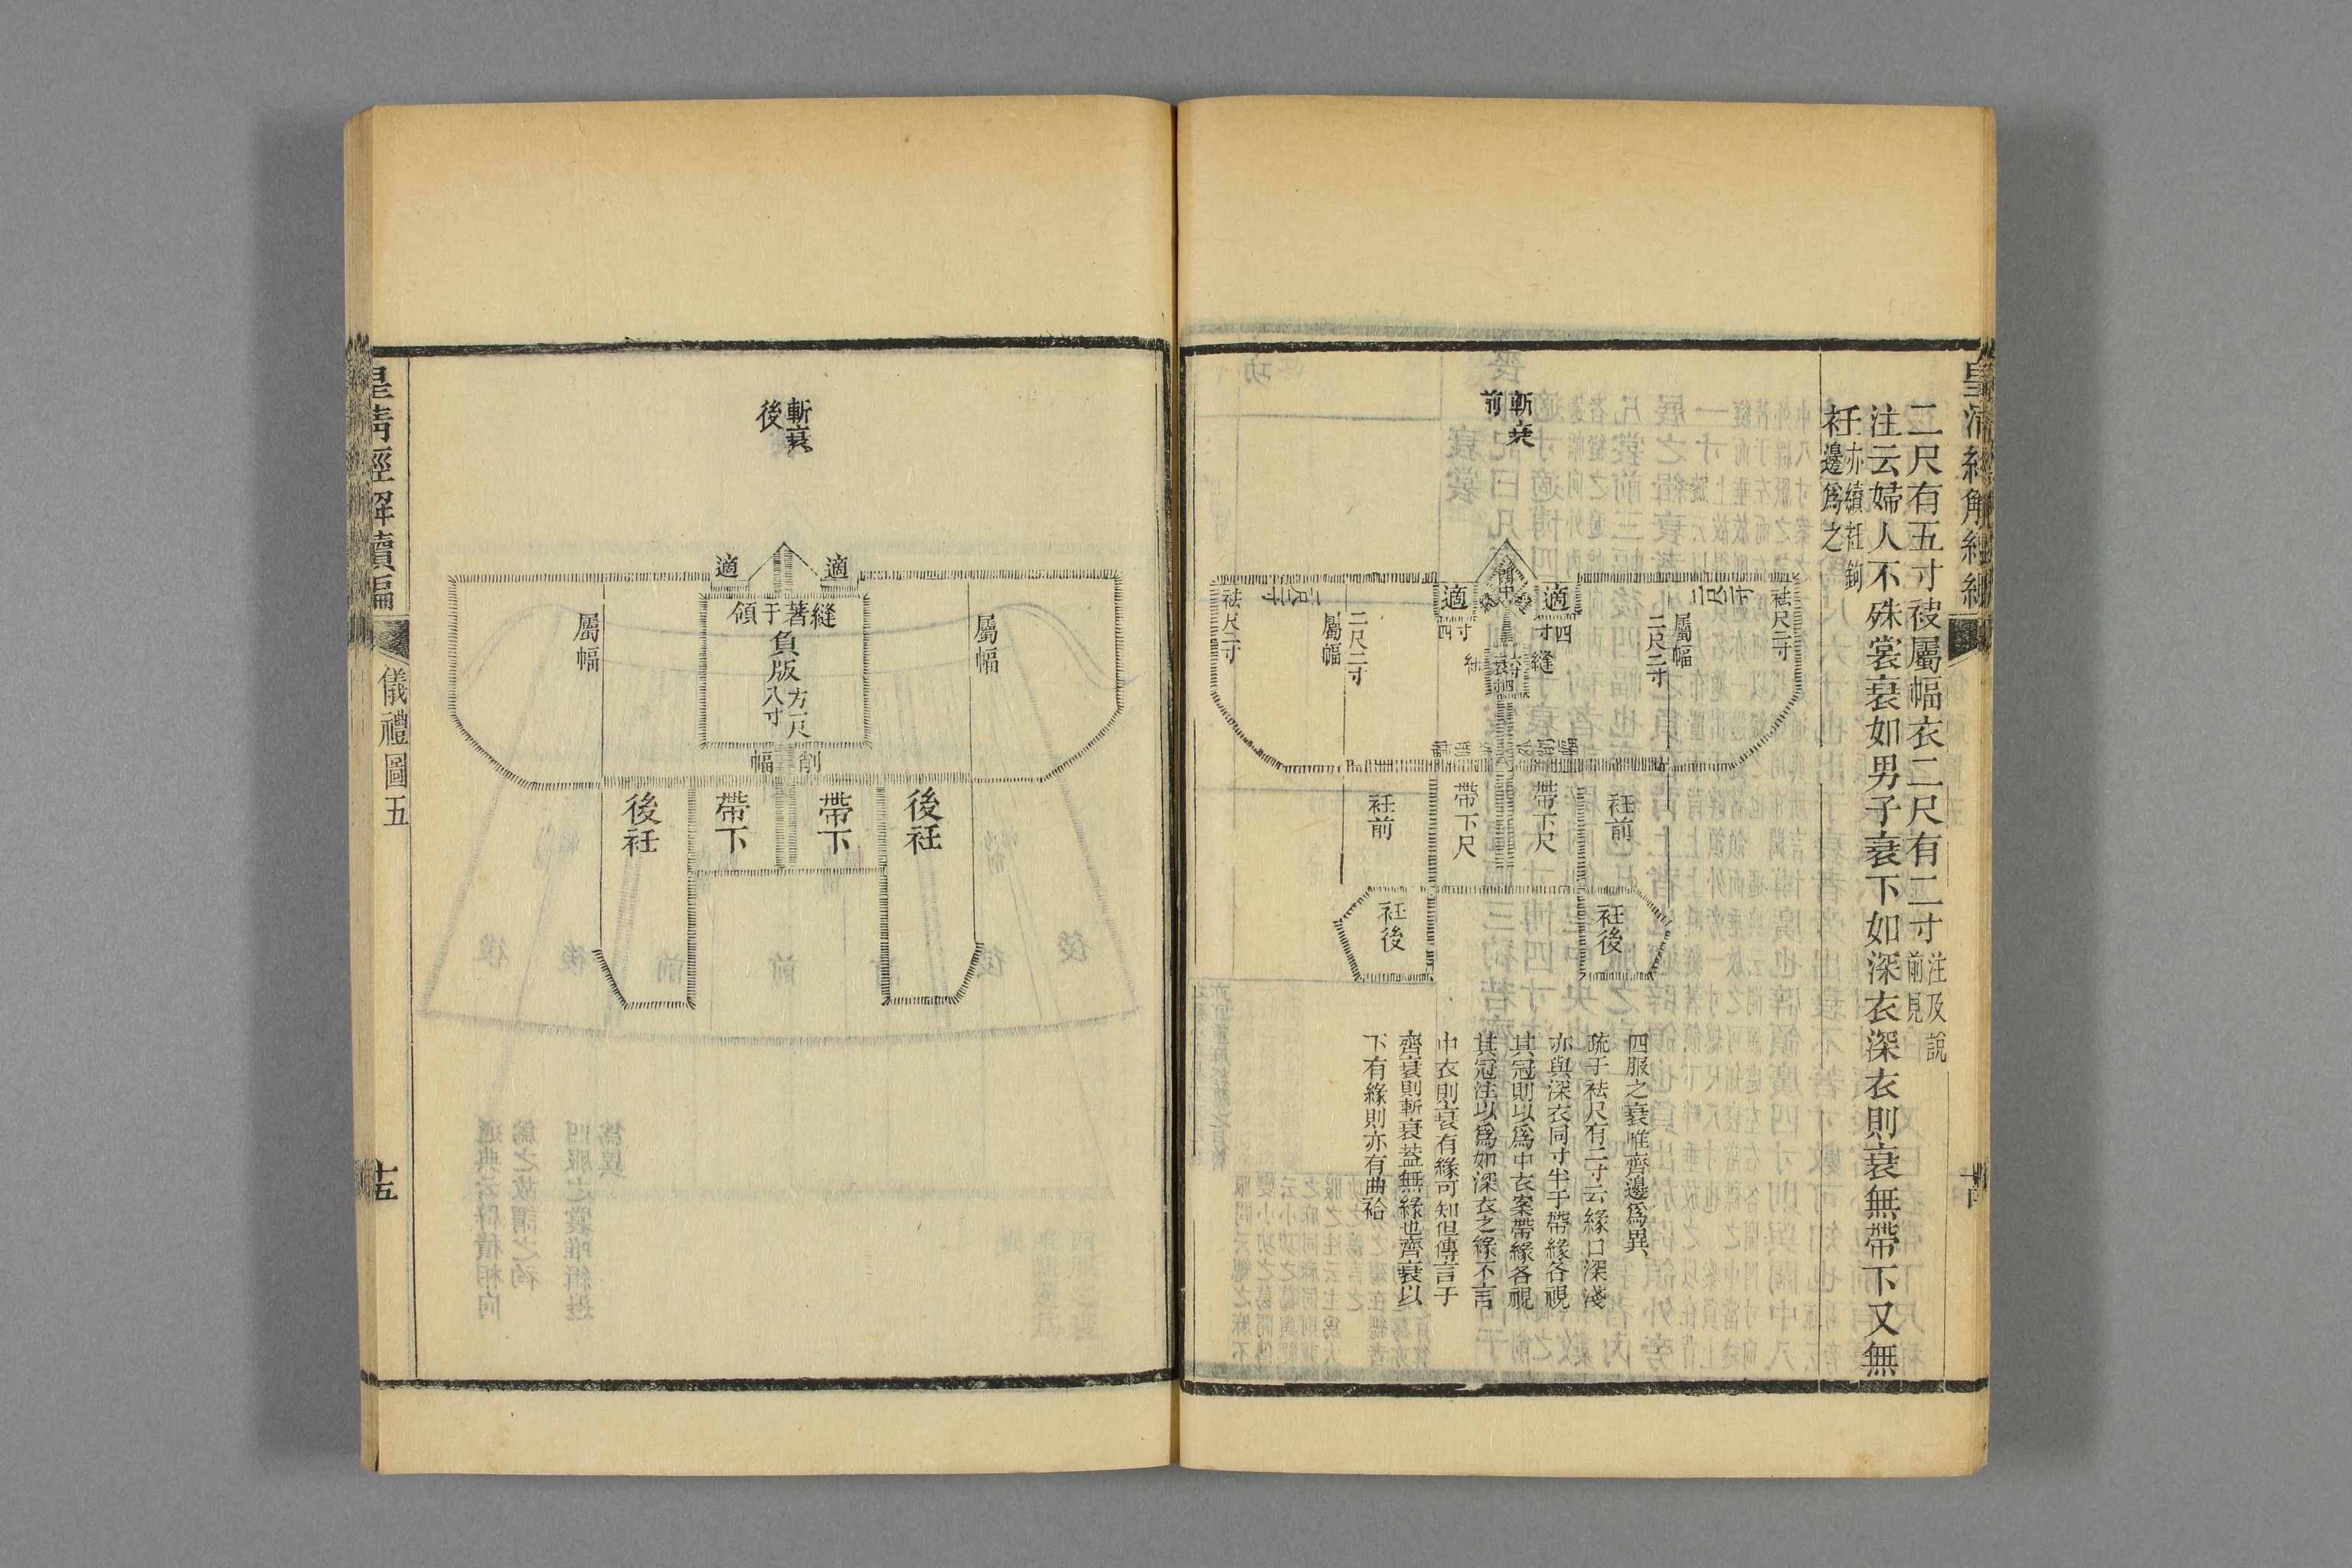 二尺有五寸袂屬幅衣二尺有二寸 注及說前見
注云婦人不殊裳衰如男子衰下如深衣深衣則衰無帶下又無
衽 亦續衽鉤邊爲之
斬衰
前
適
適
四寸
四寸
縫
袪尺二寸
袪尺二寸
屬幅
二尺二寸
二尺二寸
屬幅
衽前
帶下尺
帶下尺
衽前
衽後
衽後
四服之衰唯齊邊爲異
疏于袪尺有二寸云緣口深淺
亦與深衣同寸半于帶緣各視
其冠則以爲中衣案帶緣各視
其冠注以爲如深衣之緣不言
中衣則衰有緣可知但傳言于
齊衰則斬衰葢無緣也齊衰以
下有緣則亦有曲袷
斬衰
後
適
適
縫著于領
負版
方一尺
八寸
削幅
屬幅
屬幅
後衽
帶下
帶下
後衽
皇清經解續編
儀禮圖五
十五